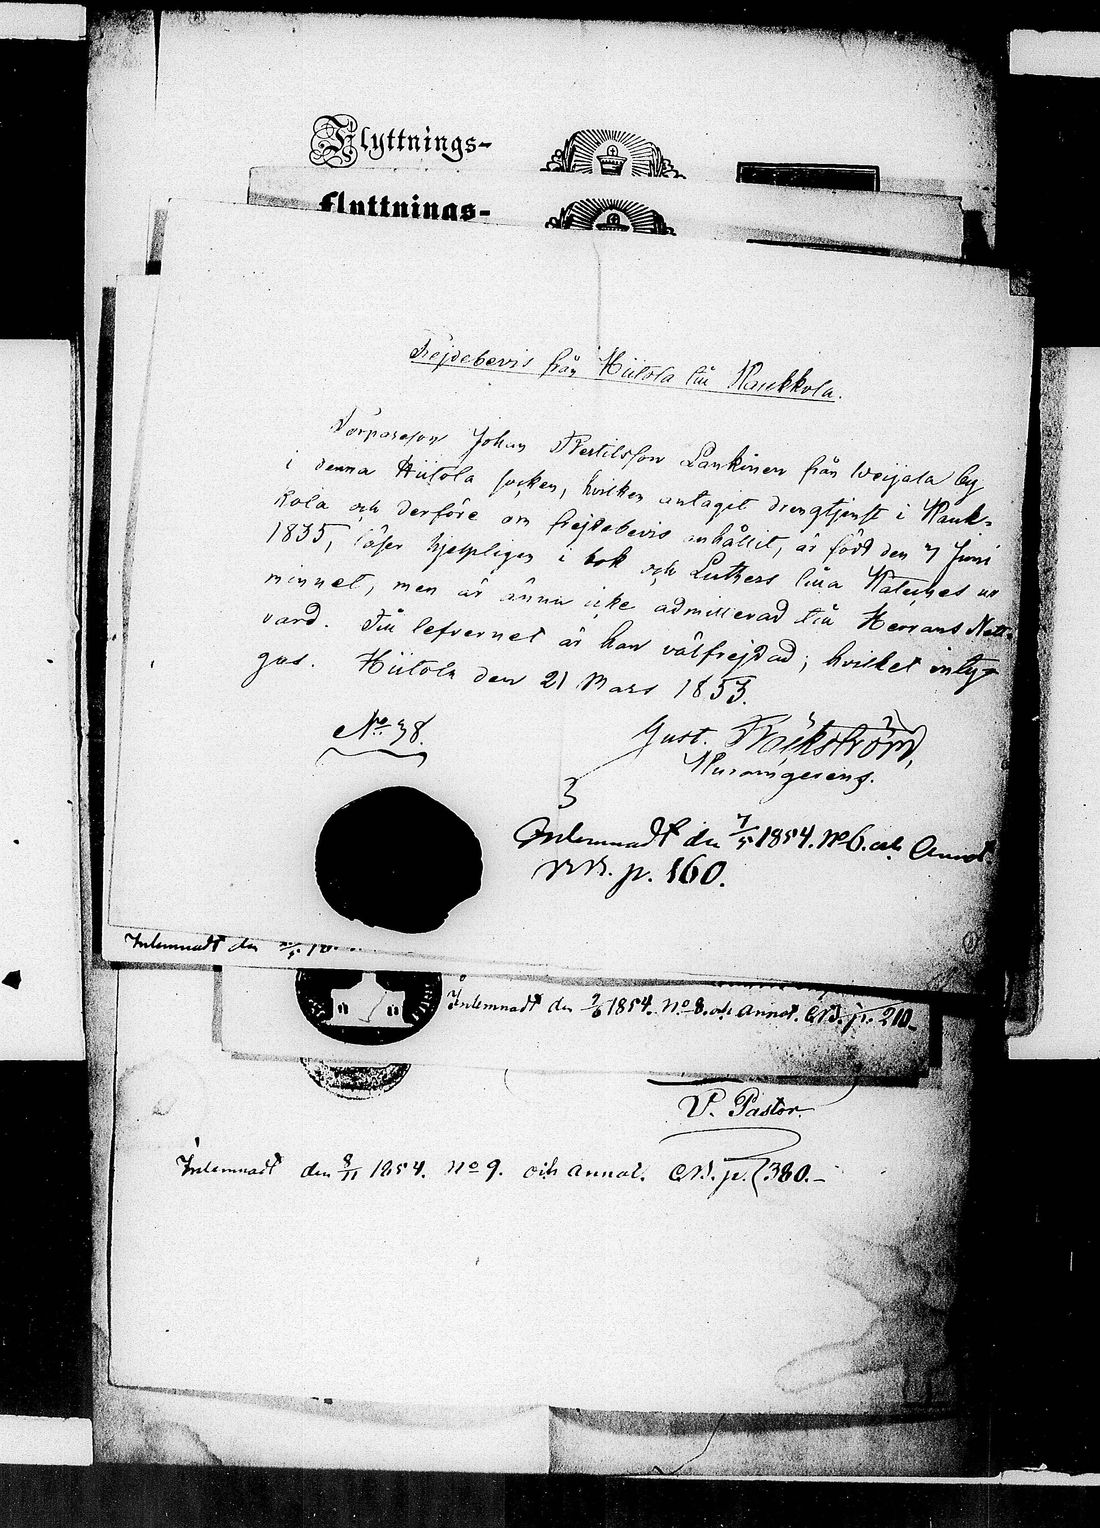 Flyttnings-
Flyttnings-
Frejdebevis från Hiitola till Kaukkola.
Torpareson Johan Bertilsson Lankinen från Weijala by
i denna Hiitola socken, hvilken antagit drengtjenst i Kauk-
kola och derföre om frejdebevis anhållit, är född den 7 Juni
1835, läser hjelpligen i bok och Luthers lilla Kateches ur
minnet, men är ännu icke admitterad till Herrans Natt-
vard. Till lefvernet är han välfrejdad; hvilket intyg-
gas. Hiitola den 21 Mars 1853.
No 38.
Gust. Bäckström,
Inlemnadt den 7/5 1854. No 6. och Annot
p. 160.
Inlemnadt den
Inlemnadt den 2/6 1854. No 8. och Annot. CNB. p. 210.
V. Pastor.
Inlemnadt den 8/11 1854. No 9. och annot. CNB. p. 380.-